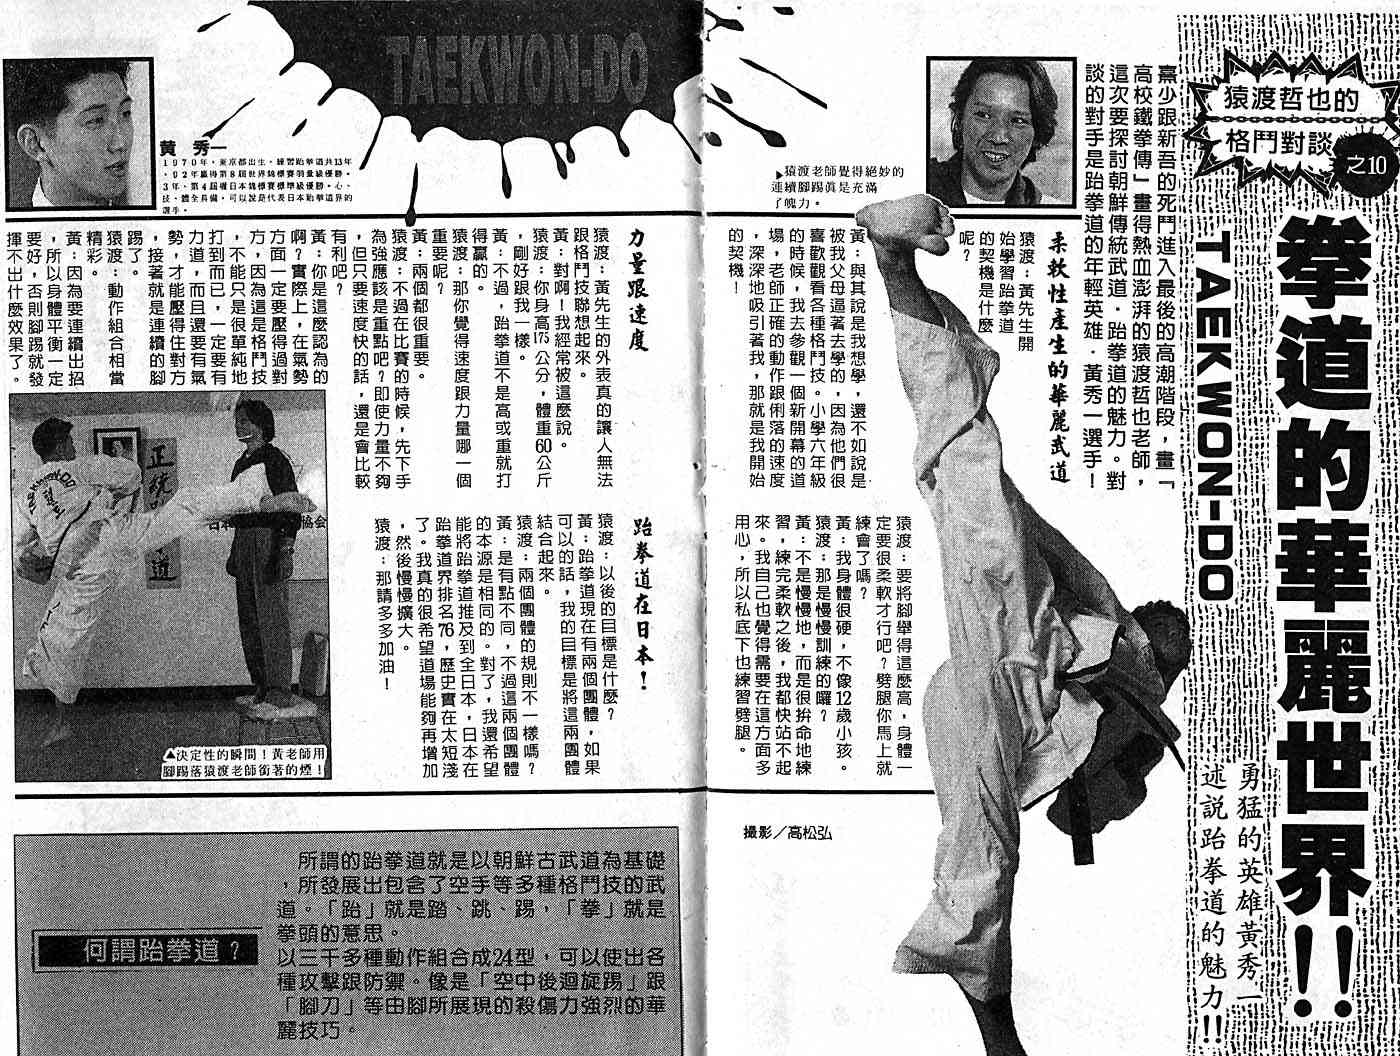 猿渡哲也的
格鬥對談
之10
拳道的華麗世界!!
TAEKWON-DO
勇猛的英雄黃秀一
述說跆拳道的魅力!!
熹少跟新吾的死鬥進入最後的高潮階段，畫「
高校鐵拳傳」畫得熱血澎湃的猿渡哲也老師，
這次要探討朝鮮傳統武道．跆拳道的魅力。對
談的對手是跆拳道的年輕英雄．黃秀一選手！
▶猿渡老師覺得絕妙的
連續腳踢真是充滿
了魄力。
柔軟性產生的華麗武道
猿渡：黃先生開
始學習跆拳道
的契機是什麼
呢？
黃：與其說是我想學，還不如說是
被我父母逼著去學的，因為他們很
喜歡觀看各種格鬥技。小學六年級
的時候，我去參觀一個新開幕的道
場，老師正確的動作跟俐落的速度
，深深地吸引著我，那就是我開始
的契機！
猿渡：要將腳舉得這麼高，身體一
定要很柔軟才行吧？劈腿你馬上就
練會了嗎？
黃：我身體很硬，不像12歲小孩。
猿渡：那是慢慢訓練的囉？
黃：不是慢慢地，而是很拚命地練
習，練完柔軟之後，我都快站不起
來。我自己也覺得需要在這方面多
用心，所以私底下也練習劈腿。
攝影／高松弘
TAEKWON-DO
黃　秀一
1970年，東京都出生。練習跆拳道共13年
，92年贏得第8屆世界錦標賽羽量級優勝。
3年、第4屆獲日本錦標賽標準級優勝。心、
技、體全具備，可以說是代表日本跆拳道界的
選手。
力量跟速度
猿渡：黃先生的外表真的讓人無法
跟格鬥技聯想起來。
黃：對啊！我經常被這麼說。
猿渡：你身高175公分，體重60公斤
，剛好跟我一樣。
黃：不過，跆拳道不是高或重就打
得贏的。
猿渡：那你覺得速度跟力量哪一個
重要呢？
黃：兩個都很重要。
猿渡：不過在比賽的時候，先下手
為強應該是重點吧？即使力量不夠
，但只要速度快的話，還是會比較
有利吧？
黃：你是這麼認為的
啊？實際上，在氣勢
方面一定要壓得過對
方，因為這是格鬥技
，不能只是很單純地
打到而已，一定要有
力道，而且還要有氣
勢，才能壓得住對方
，接著就是連續的腳
踢了。
猿渡：動作組合相當
精彩。
黃：因為要連續出招
，所以身體平衡一定
要好，否則腳踢就發
揮不出什麼效果了。
跆拳道在日本！
猿渡：以後的目標是什麼？
黃：跆拳道現在有兩個團體，如果
可以的話，我的目標是將這兩團體
結合起來。
猿渡：兩個團體的規則不一樣嗎？
黃：是有點不同，不過這兩個團體
的本源是相同的。對了，我還希望
能將跆拳道推及到全日本，日本在
跆拳道界排名76，歷史實在太短淺
了。我真的很希望道場能夠再增加
，然後慢慢擴大。
猿渡：那請多多加油！
▲決定性的瞬間！黃老師用
腳踢落猿渡老師銜著的煙！
何謂跆拳道？
所謂的跆拳道就是以朝鮮古武道為基礎
，所發展出包含了空手等多種格鬥技的武
道。「跆」就是踏、跳、踢，「拳」就是
拳頭的意思。
以三千多種動作組合成24型，可以使出各
種攻擊跟防禦。像是「空中後迴旋踢」跟
「腳刀」等由腳所展現的殺傷力強烈的華
麗技巧。